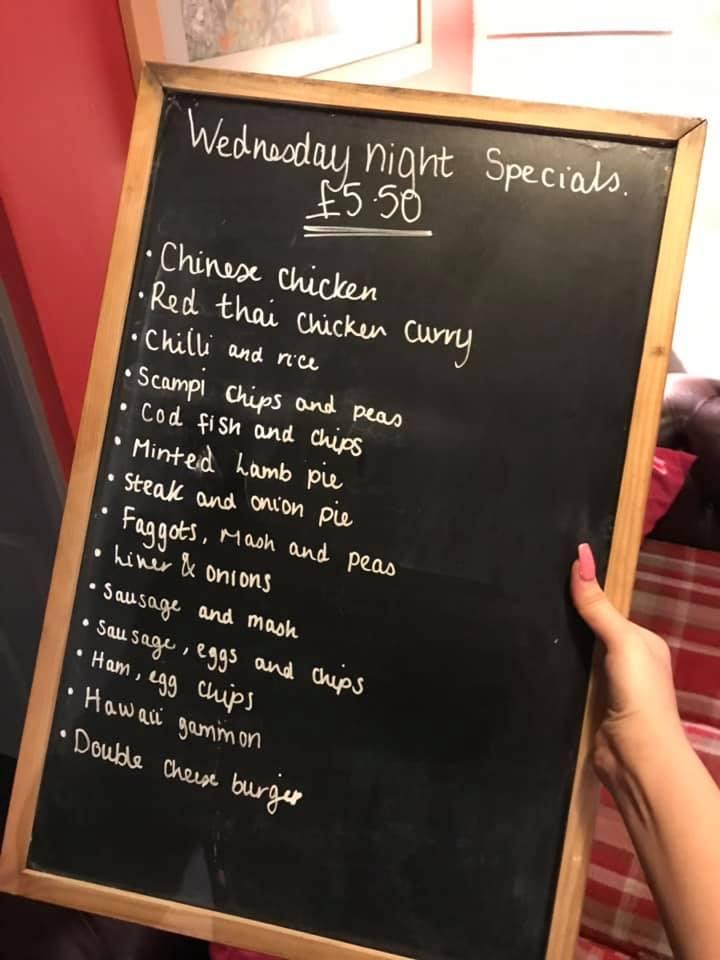 Wednesday night Specials.
£5.50
• Chinese chicken
• Red thai chicken curry
• Chilli and rice
• Scampi chips and peas
• Cod fish and chips
• Minted Lamb pie
• Steak and onion pie
• Faggots, Mash and peas
• Liver & onions
• Sausage and mash
• Sausage, eggs and chips
• Ham, egg chips
• Hawaii gammon
• Double cheese burger